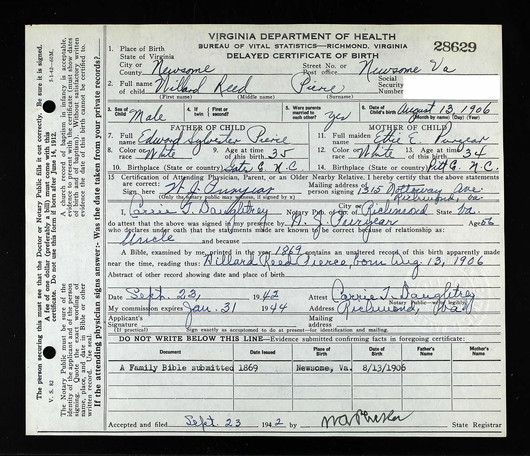 VIRGINIA DEPARTMENT OF HEALTH
BUREAU OF VITAL STATISTICS—RICHMOND, VIRGINIA
DELAYED CERTIFICATE OF BIRTH
28629
1. Place of Birth
State of Virginia
City or County Newsome
Street No. or Post office Newsome Va
2. Full name Willard Reed Pierce
(First name) (Middle name) (Surname)
Social Security Number
3. Sex of Child Male
4. If twin
5. Were parents married to each other? Yes
6. Date of Child's birth August 13, 1906
FATHER OF CHILD
MOTHER OF CHILD
7. Full name Edward Sylvester Pierce
11. Full maiden name Ethie E. Puryear
8. Color or race White
9. Age at time of this birth 35
12. Color or race White
13. Age at time of this birth 34
10. Birthplace (State or country) N.C.
14. Birthplace (State or country) N.C.
15. Certification of Attending Physician, Parent, or an Older Nearby Relative. I hereby certify the above statements
Correct Sign here: W. J. Puryear
Mailing address of person signing 1315 Nottoway Ave Richmond, Va
(Only the notary public may witness, if signed by a mark)
I, Carrie T. Daughtrey Notary Pub. of City or County Richmond State Va.
do attest that the above was signed in my presence by W. J. Puryear Age 56
who declares under oath that the statements made are known to be correct because of relationship as:
Uncle and because
A Bible, examined by me, printed in the year 1869 contains an unaltered record of this birth apparently made
near the time, reading thus: Willard Reed Pierce, born Aug. 13, 1906
Abstract of other record showing date and place of birth
Date Sept. 23, 1942 Attest Carrie T. Daughtrey
My commission expires Jan. 31 1944 Address Richmond, Va
Applicant's Signature
Mailing Address
(If practical) Sign exactly as accustomed to do at present—for identification and mailing.
DO NOT WRITE BELOW THIS LINE—Evidence submitted confirming facts in foregoing certificate:
Document Date Issued Place of Birth Date of Birth Father's Name Mother's Name
A Family Bible submitted 1869 Newsome, Va. 8/13/1906
Accepted and filed Sept. 23 1942 State Registrar
The person securing this must see that the Doctor or Notary Public fills it out correctly. Be sure it is signed.
A fee of one dollar (preferably a bill) must come with this
certificate. Do not use this form if born after June 14, 1912.
V. S. 82
If the attending physician signs answer:- Was the date taken from your private records?